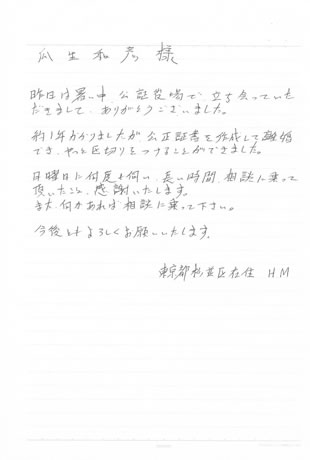 瓜生和彦様
昨日は暑い中公証役場で立ち会っていた
だきまして、ありがとうございました。
約1年かかりましたが公正証書を作成して離婚
でき、やっと区切りをつけることができました。
日曜日に何度も伺い、長い時間、相談に乗って
頂いたこと、感謝いたします。
また何かあれば相談に乗って下さい。
今後ともよろしくお願いいたします。
東京都杉並区在住 HM